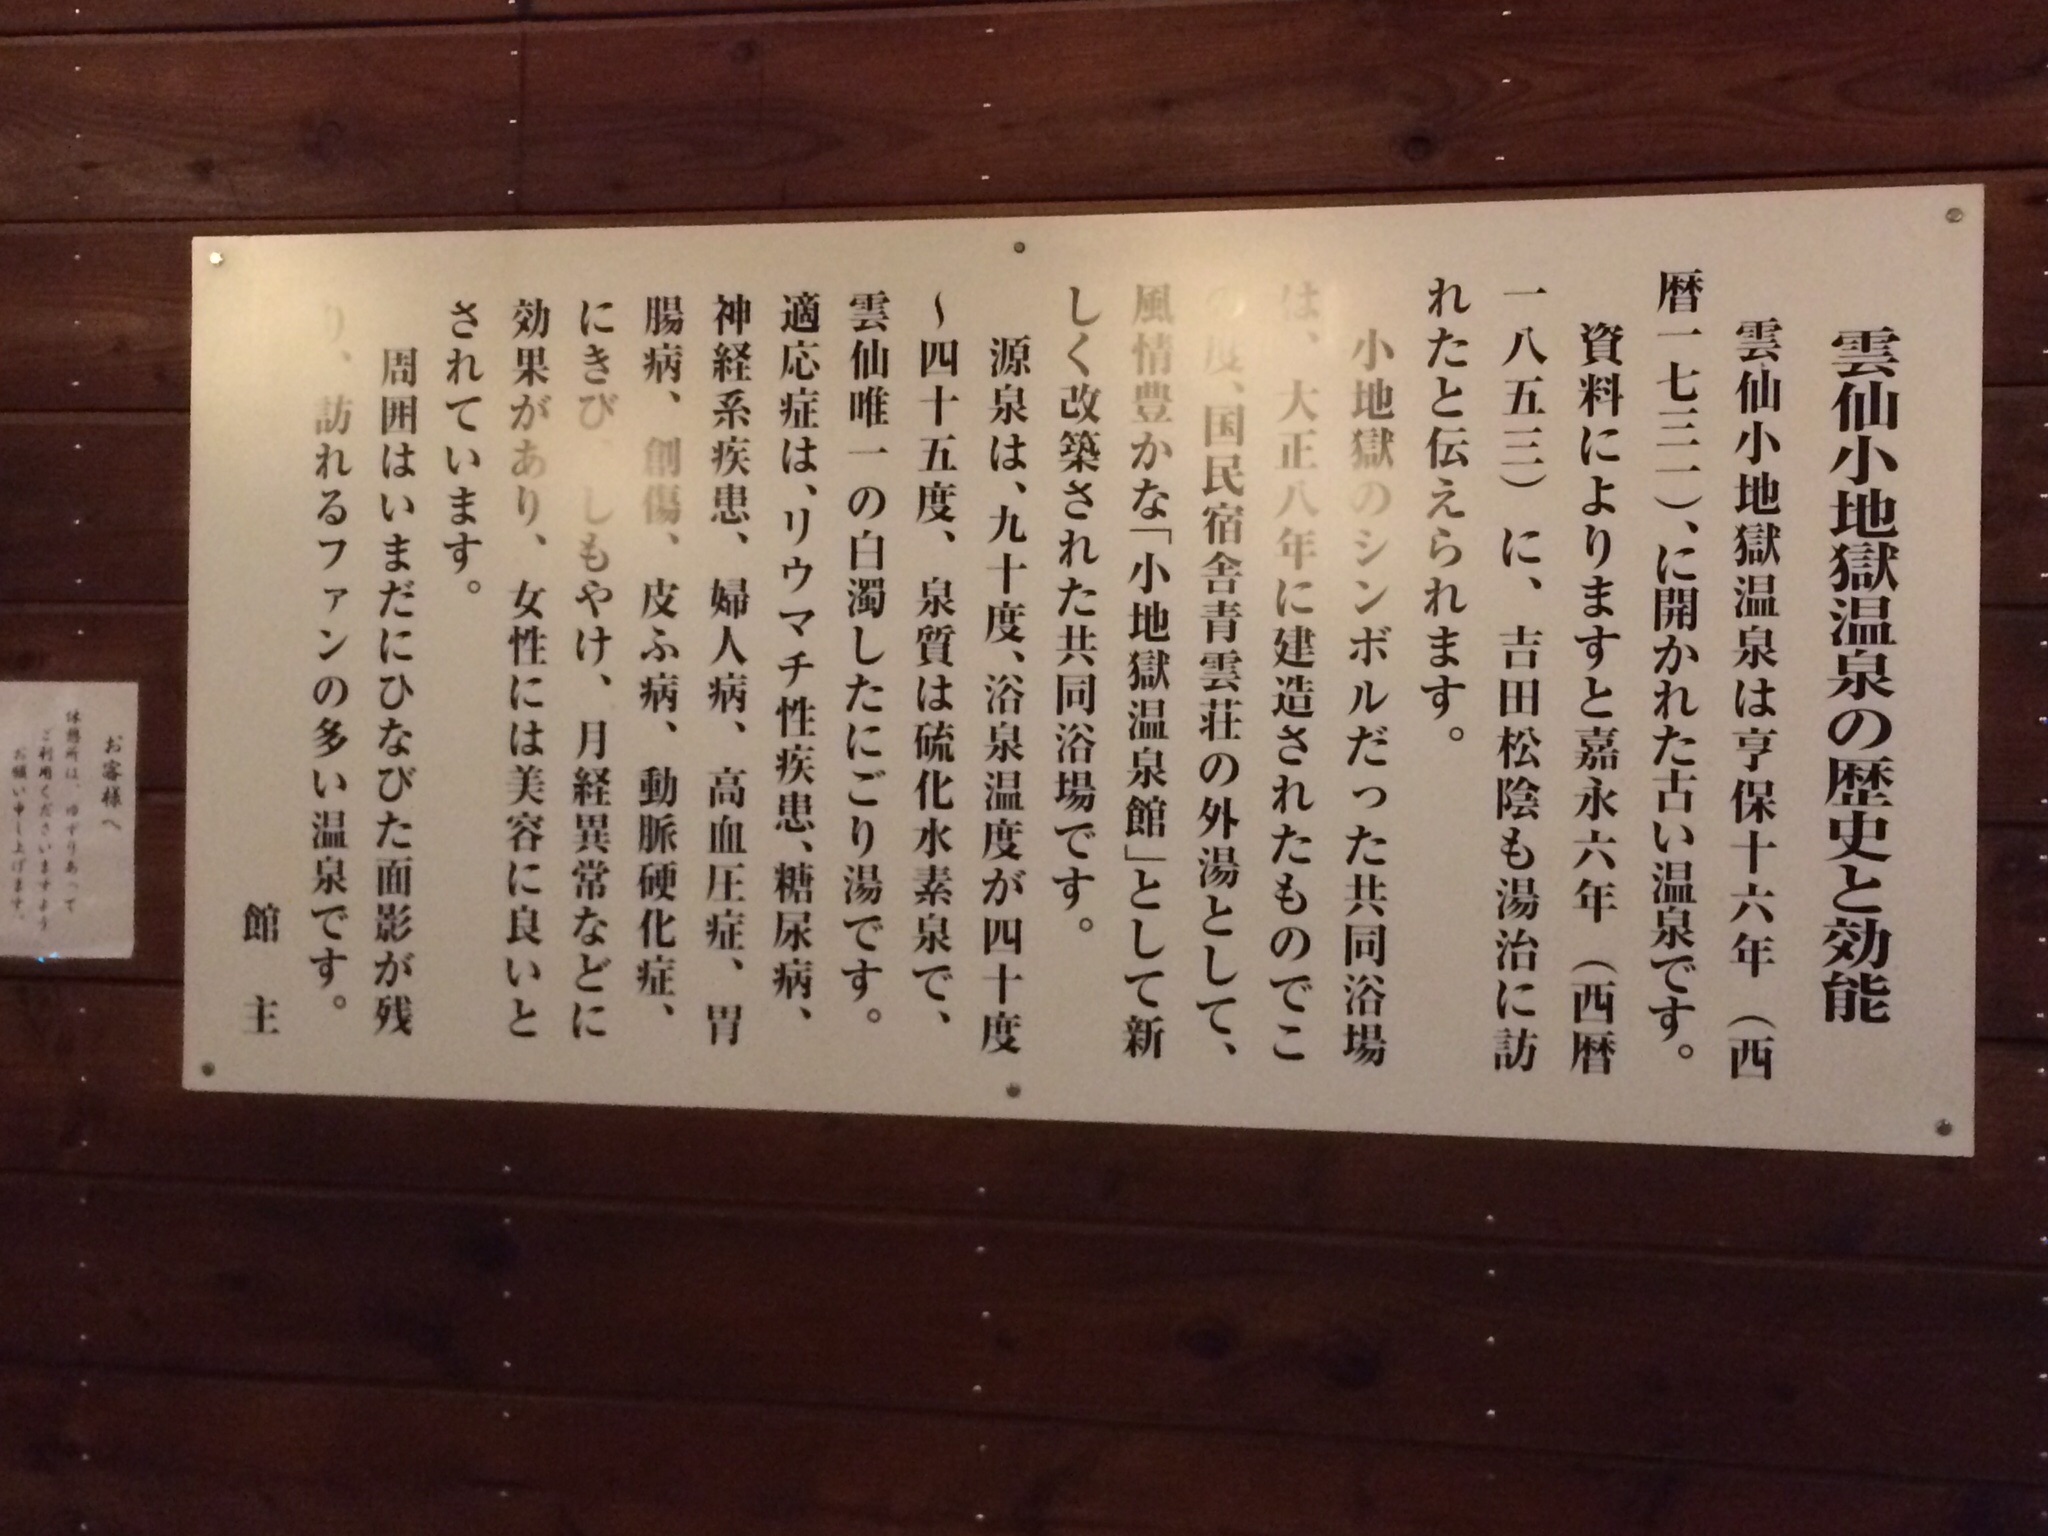 雲仙小地獄温泉の歴史と効能
雲仙小地獄温泉は享保十六年（西
暦一七三一）、に開かれた古い温泉です。
資料によりますと嘉永六年（西暦
一八五三）に、吉田松陰も湯治に訪
れたと伝えられます。
小地獄のシンボルだった共同浴場
は、大正八年に建造されたものでこ
の度、国民宿舎青雲荘の外湯として、
風情豊かな「小地獄温泉館」として新
しく改築された共同浴場です。
源泉は、九十度、浴泉温度が四十度
～四十五度、泉質は硫化水素泉で、
雲仙唯一の白濁したにごり湯です。
適応症は、リウマチ性疾患、糖尿病、
神経系疾患、婦人病、高血圧症、胃
腸病、創傷、皮ふ病、動脈硬化症、
にきび、しもやけ、月経異常などに
効果があり、女性には美容に良いと
されています。
周囲はいまだにひなびた面影が残
り、訪れるファンの多い温泉です。
館主
お客様へ
休憩所は、ゆずりあって
ご利用くださいますよう
お願い申し上げます。